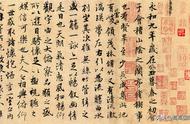 永和九年歲在癸丑暮春之初會
于會稽山陰之蘭亭脩禊事
也群賢畢至少長咸集此地
有崇山峻領茂林脩竹又有清流激
湍暎帶左右引以為流觴曲水
列坐其次雖無絲竹管弦之
盛一觴一詠亦足以暢敘幽情
是日也天朗氣清惠風和暢仰
觀宇宙之大俯察品類之盛
所以遊目騁懷足以極視聽之
娛信可樂也夫人之相與俯仰